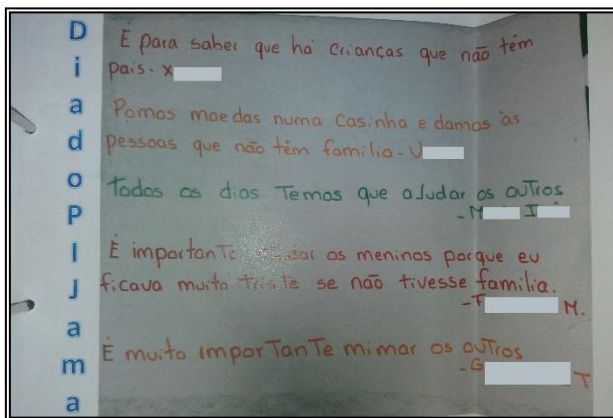 D
i
a
d
o
P
I
J
a
m
a
É para saber que há crianças que não têm
pais - X
Pomos moedas numa casinha e damos às
pessoas que não têm família - V
Todos os dias Temos que aJudar os ouTros
- M I
É importanTe os meninos porque eu
ficava muito trisTe se não tivesse família.
- F M.
É muito imporTanTe mimar os ouTros
- G T